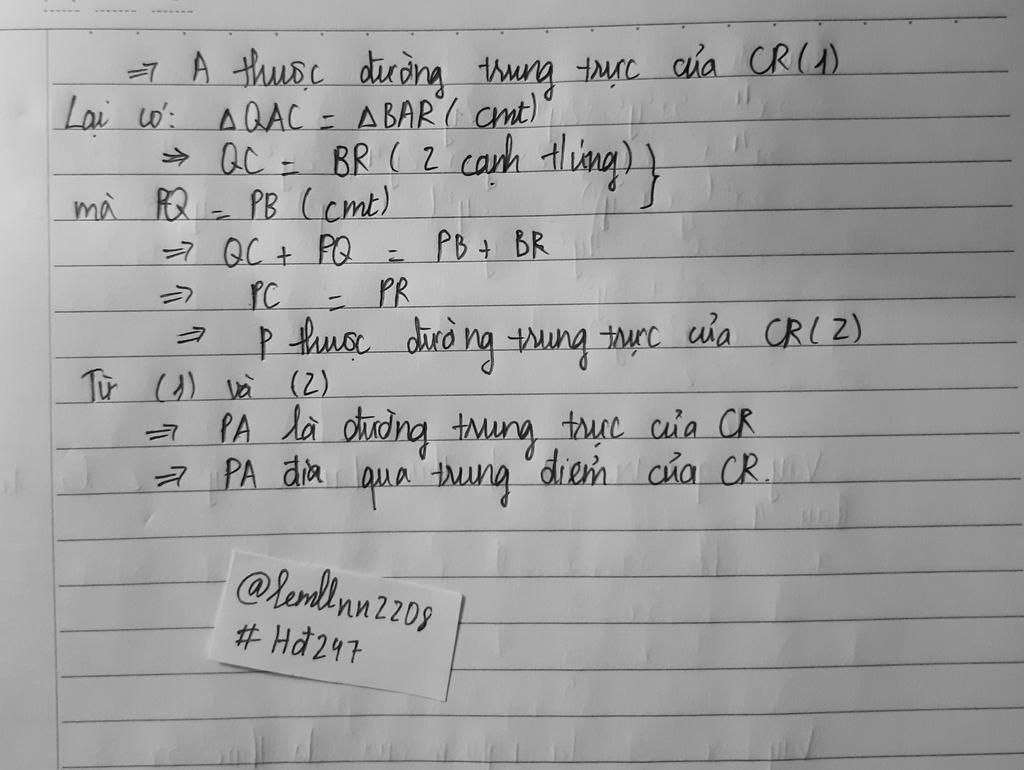 ⇒ A thuộc đường trung trực của CR (1)
Lại có: ΔQAC = ΔBAR ( cmt)
⇒ QC = BR ( 2 cạnh t/ứng) }
mà PQ = PB (cmt)
⇒ QC + PQ = PB + BR
⇒ PC = PR
⇒ P thuộc đường trung trực của CR (2)
Từ (1) và (2)
⇒ PA là đường trung trực của CR
⇒ PA đia qua trung điểm của CR.
@lemllnn2208
# Hđ247